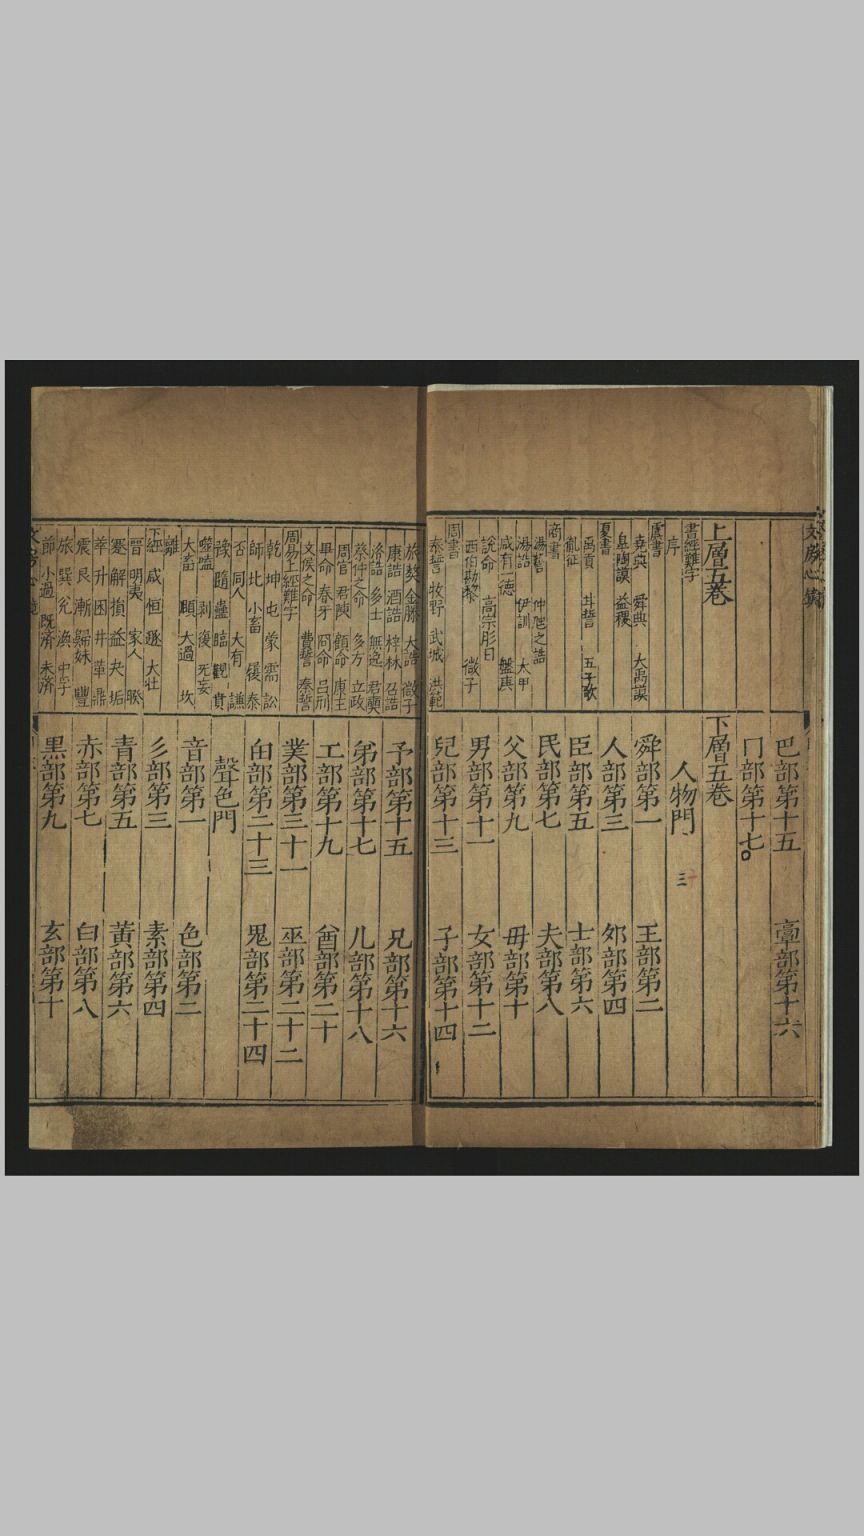 上層五卷
書經難字
序
虞書
堯典 舜典 大禹謨
皐陶謨 益稷
夏書
禹貢 甘誓 五子歌
胤征
商書
湯誓 仲虺之誥
湯誥 伊訓 太甲
咸有一德 盤庚
說命 高宗肜日
西伯勘黎 微子
周書
泰誓 牧野 武城 洪範
巴部第十五 𩫖部第十六
冂部第十七
下層五卷
人物門
舜部第一 王部第二
人部第三 郊部第四
臣部第五 士部第六
民部第七 夫部第八
父部第九 毋部第十
男部第十一 女部第十二
兒部第十三 子部第十四
旅獒 金縢 大誥 微子
康誥 酒誥 梓林 召誥
洛誥 多士 無逸 君奭
蔡仲之命 多方 立政
周官 君陳 顧命 康王
畢命 春牙 冏命 呂刑
文侯之命 費誓 秦誓
周易上經難字
乾 坤 屯 蒙 需 訟
師 比 小畜 履 泰
否 同人 大有 謙
豫 隨 蠱 臨 觀 賁
噬嗑 剥 復 无妄
大畜 頤 大過 坎
離
下經 咸 恒 遯 大壯
晉 明夷 家人 睽
蹇 解 損 益 夬 垢
萃 升 困 井 革 鼎
震 艮 漸 歸妹 豐
旅 巽 兊 渙 中孚
節 小過 既濟 未濟
予部第十五 兄部第十六
弟部第十七 儿部第十八
工部第十九 酋部第二十
菐部第三十一 巫部第二十二
白部第二十三 鬼部第二十四
聲色門
音部第一 色部第二
彡部第三 素部第四
青部第五 黃部第六
赤部第七 白部第八
黑部第九 玄部第十